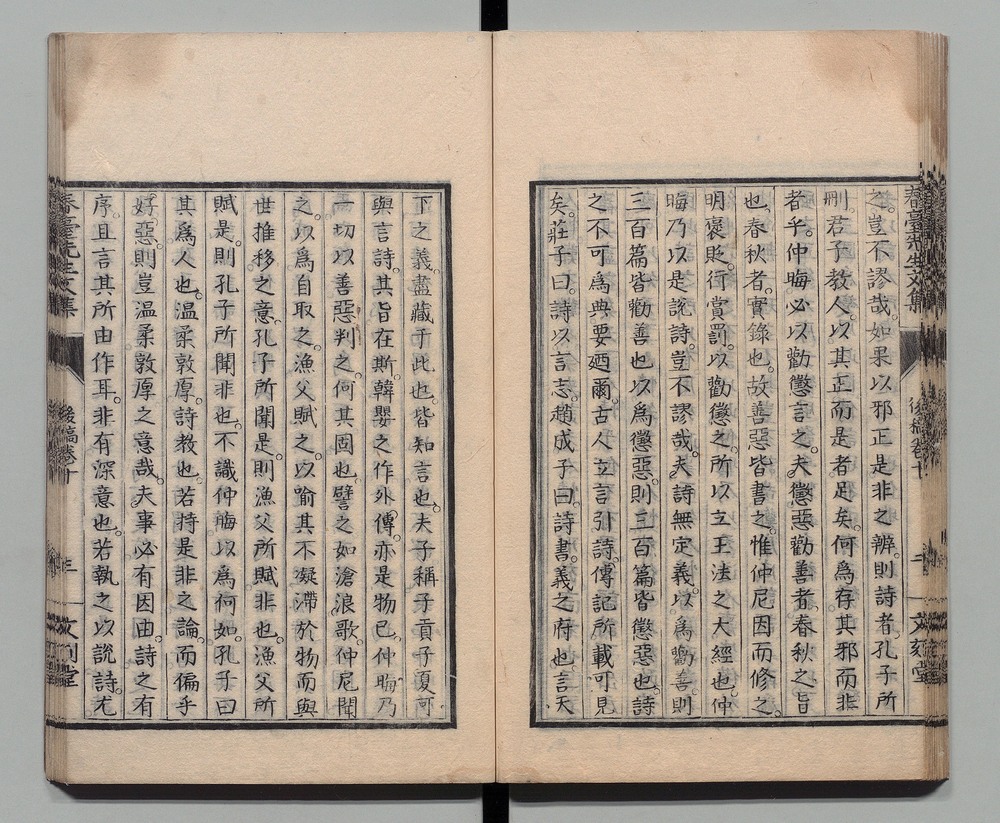 之豈不謬哉如果以邪正是非之辨則詩者孔子所
刪君子教人以其正而是者足矣何爲存其邪而非
者乎仲晦必以勸懲言之夫懲惡勸善者春秋之旨
也春秋者實錄也故善惡皆書之惟仲尼因而修之
明褒貶行賞罰以勸懲之所以立王法之大經也仲
晦乃以是說詩豈不謬哉夫詩無定義以爲勸善則
三百篇皆勸善也以爲懲惡則三百篇皆懲惡也詩
之不可爲典要廼爾古人立言引詩傳記所載可見
矣莊子曰詩以言志趙成子曰詩書義之府也言天
春臺先生文集
後稿卷十
二
文刻堂
下之義盡藏于此也皆知言也夫子稱子貢子夏可
與言詩其旨在斯韓嬰之作外傳亦是物已仲晦乃
一切以善惡判之何其固也譬之如滄浪歌仲尼聞
之以爲自取之漁父賦之以喻其不凝滯於物而與
世推移之意孔子所聞是則漁父所賦非也漁父所
賦是則孔子所聞非也不識仲晦以爲何如孔子曰
其爲人也溫柔敦厚詩教也若持是非之論而偏乎
好惡則豈溫柔敦厚之意哉夫事必有因由詩之有
序且言其所由作耳非有深意也若執之以說詩尤
春臺先生文集
後稿卷十
三
文刻堂